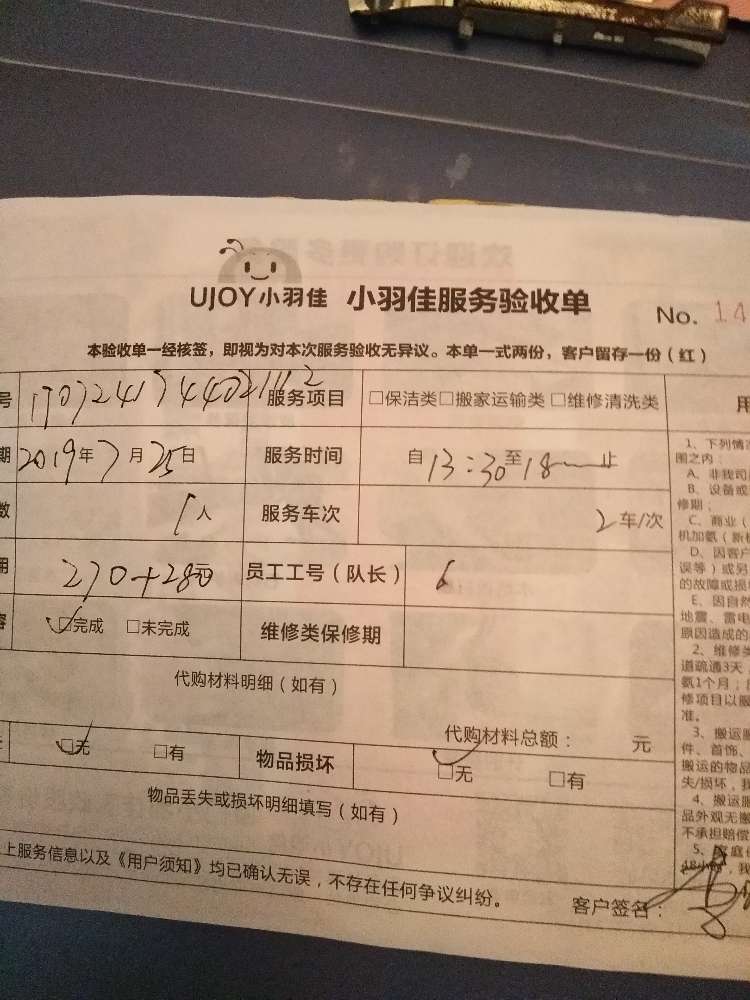 UJOY小羽佳 小羽佳服务验收单 No. 14
本验收单一经核签，即视为对本次服务验收无异议。本单一式两份，客户留存一份（红）
号 服务项目 □保洁类□搬家运输类 □维修清洗类 用
期 2019年7月25日 服务时间 自13:30至18—止
数 1人 服务车次 2车/次
用 270+28元 员工工号（队长） 6
容 □完成 □未完成 维修类保修期
代购材料明细（如有）
代购材料总额： 元
□无 □有 物品损坏 □无 □有
物品丢失或损坏明细填写（如有）
上服务信息以及《用户须知》均已确认无误，不存在任何争议纠纷。
客户签名：
1、下列情
围之内：
A、非我司
B、设备或
修期；
C、商业（
机加氨（新机
D、因客户
误等）或另
的故障或损
E、因自然
地震、雷电
原因造成的
2、维修类
道疏通3天
氨1个月；
修项目以服
准。
3、搬运服
件、首饰、
搬运的物品
失/损坏，我
4、搬运服
品外观无搬
不承担赔偿
5、家庭
48小